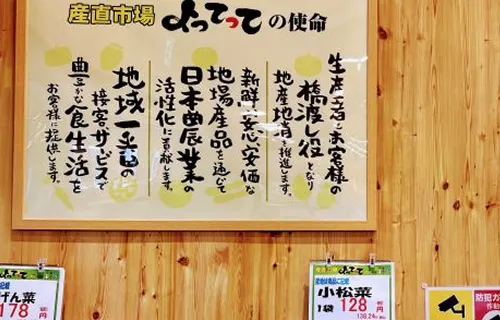 産直市場よってっての使命
生産者とお客様の
橋渡し役となり
地産地消を推進します。
新鮮・安心・安価な
地場産品を通じて
日本農業の
活性化に貢献します。
地域一番の
接客サービスで
豊かな食生活を
お客様に提供します。
げん菜
178
産直市場よってって
小松菜
1袋 128 円
138.24
防犯カ
作動